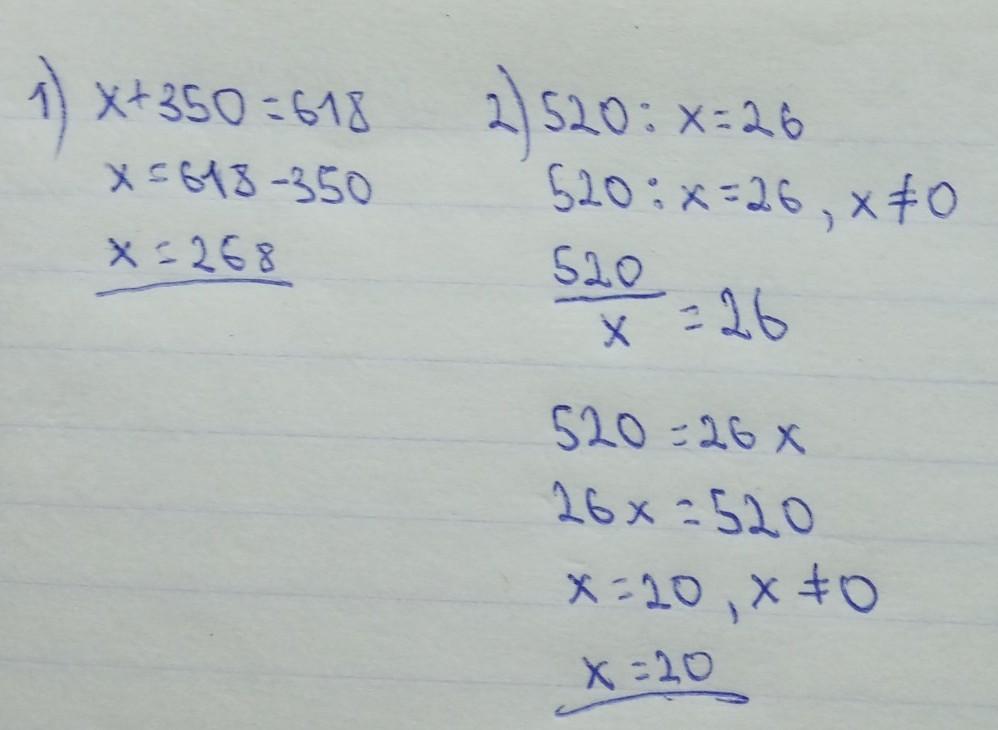 1) x+350=618
x=618-350
x=268
2) 520: x=26
520: x=26, x≠0
520
x
=26
520=26x
26x=520
x=20, x≠0
x=20